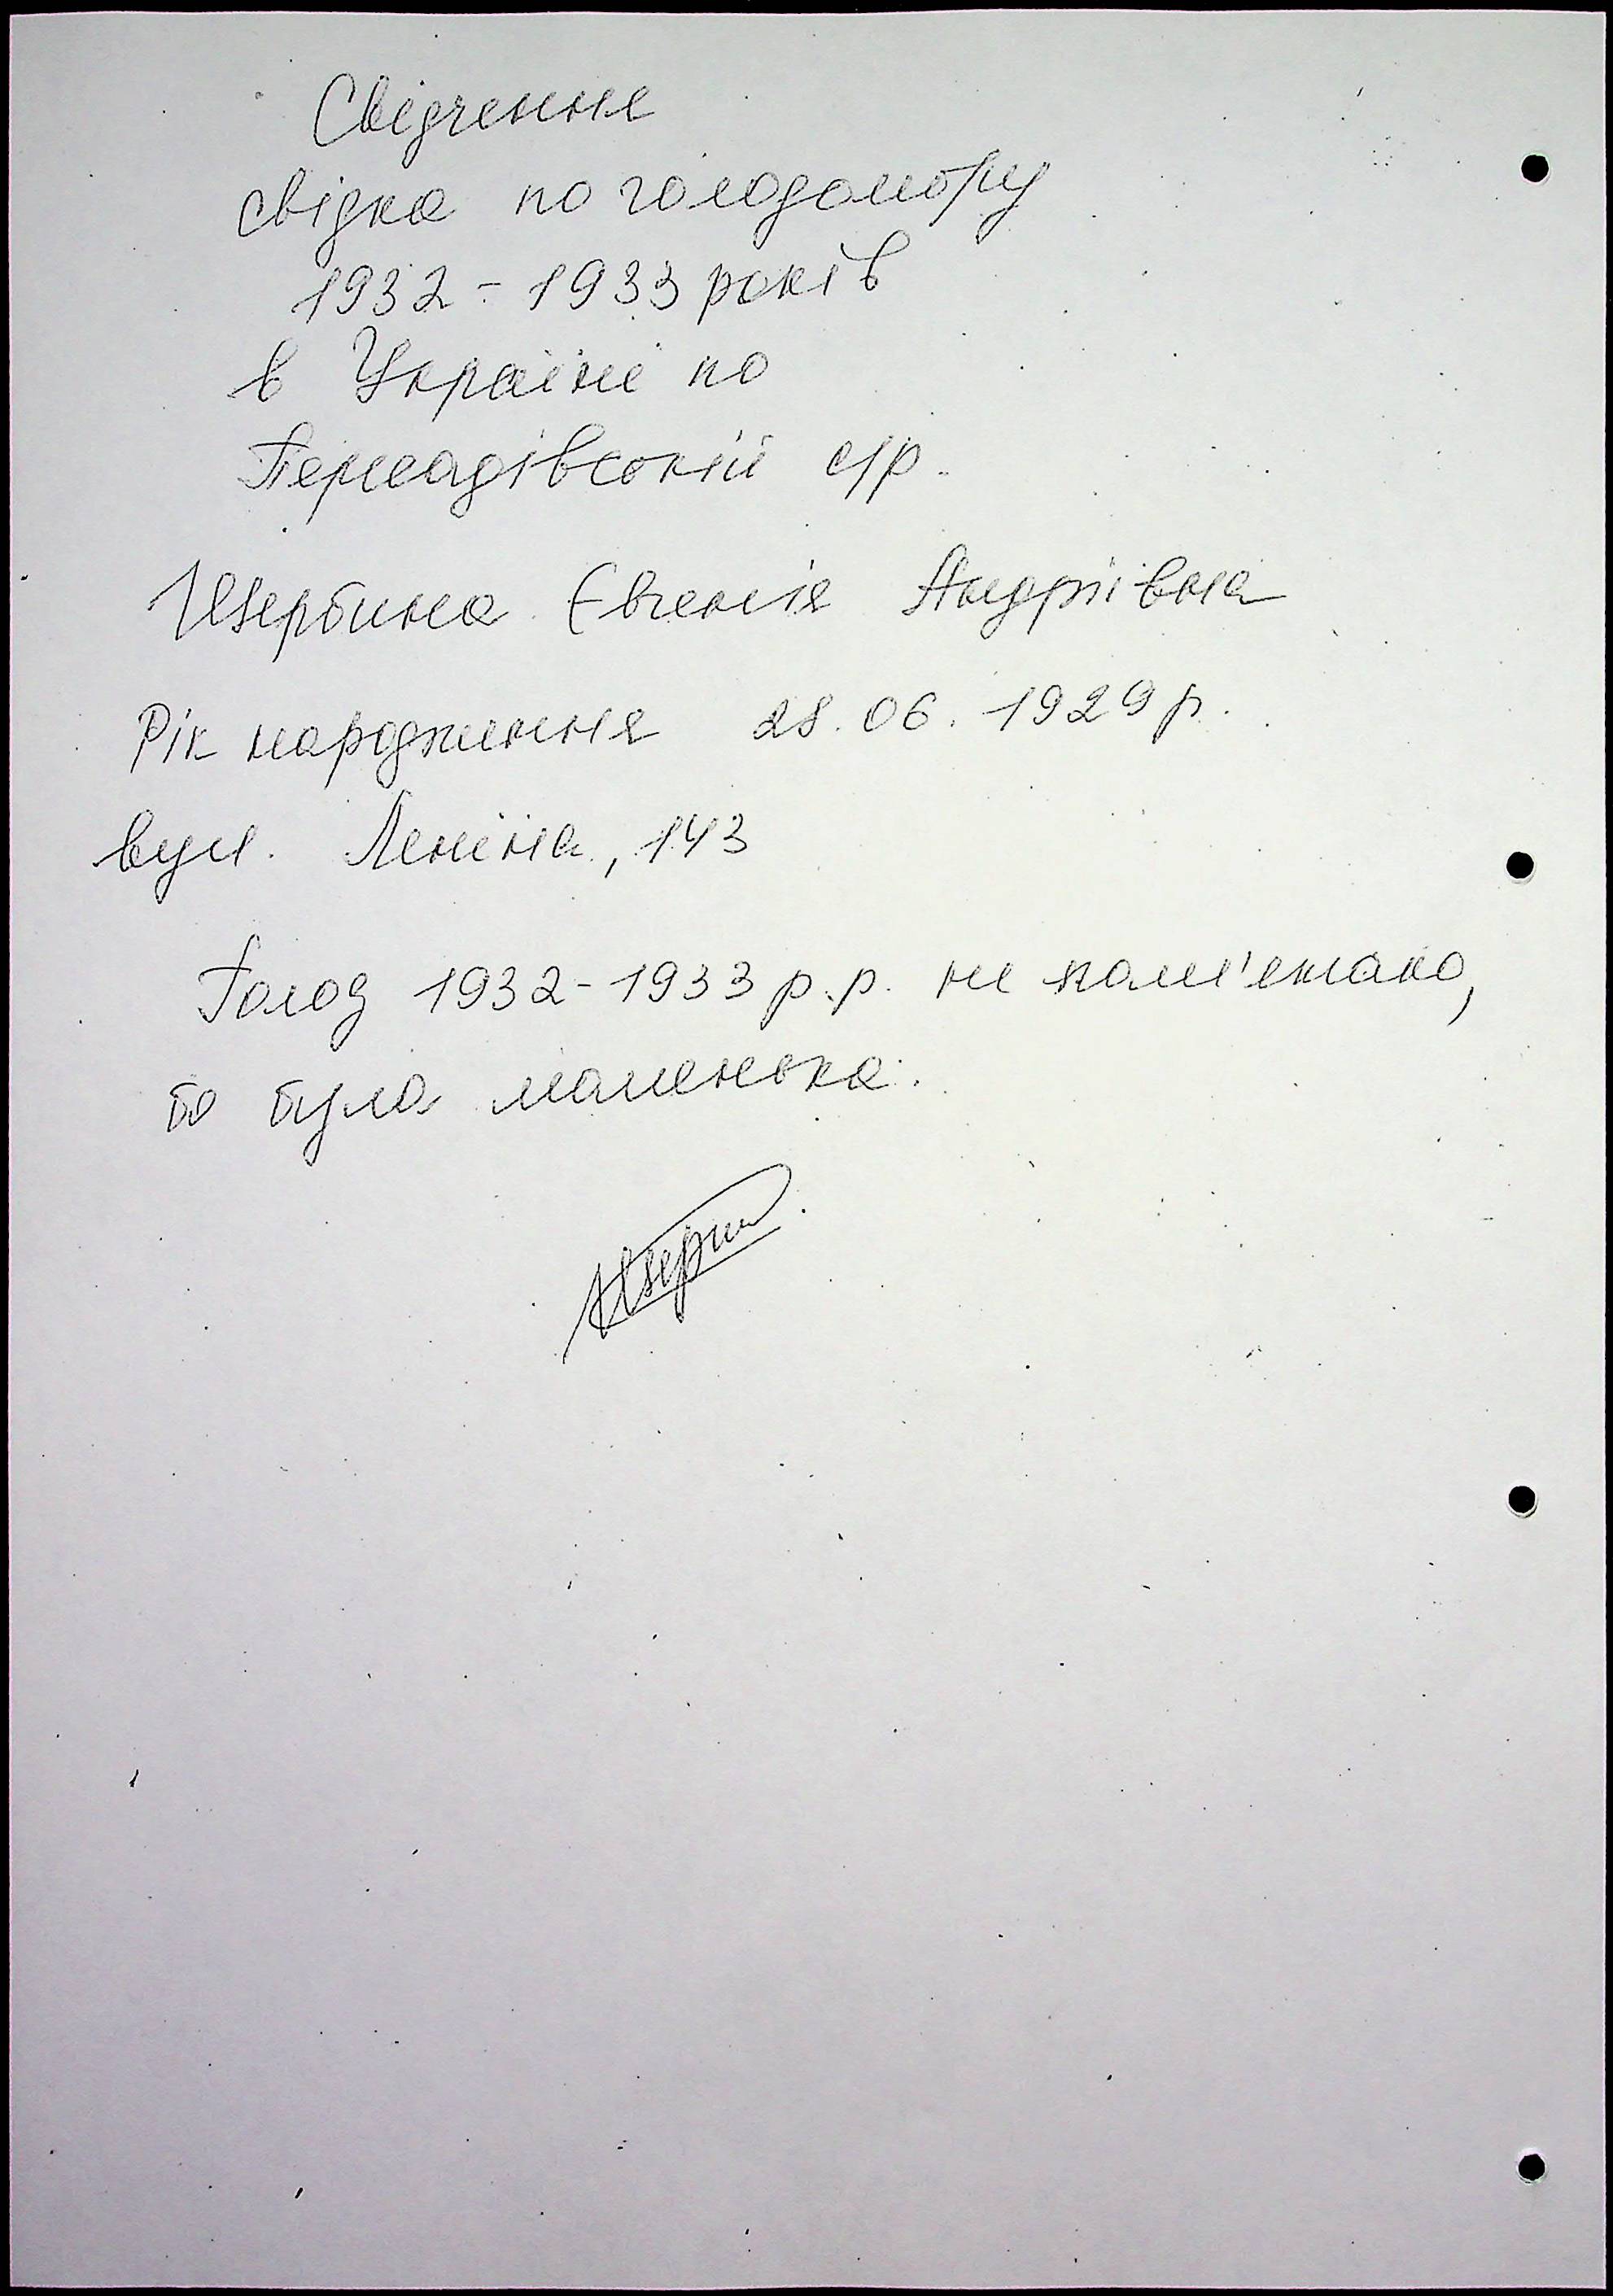 Свідчення
свідка по голодомору
1932-1933 років
в Україні по
Пермадівській с/р.
Щербина Євгенія Андріївна
Рік народження 28.06.1929 р.
вул. Леніна, 143
Голод 1932-1933 р.р. не пам'ятаю,
бо була маленька.